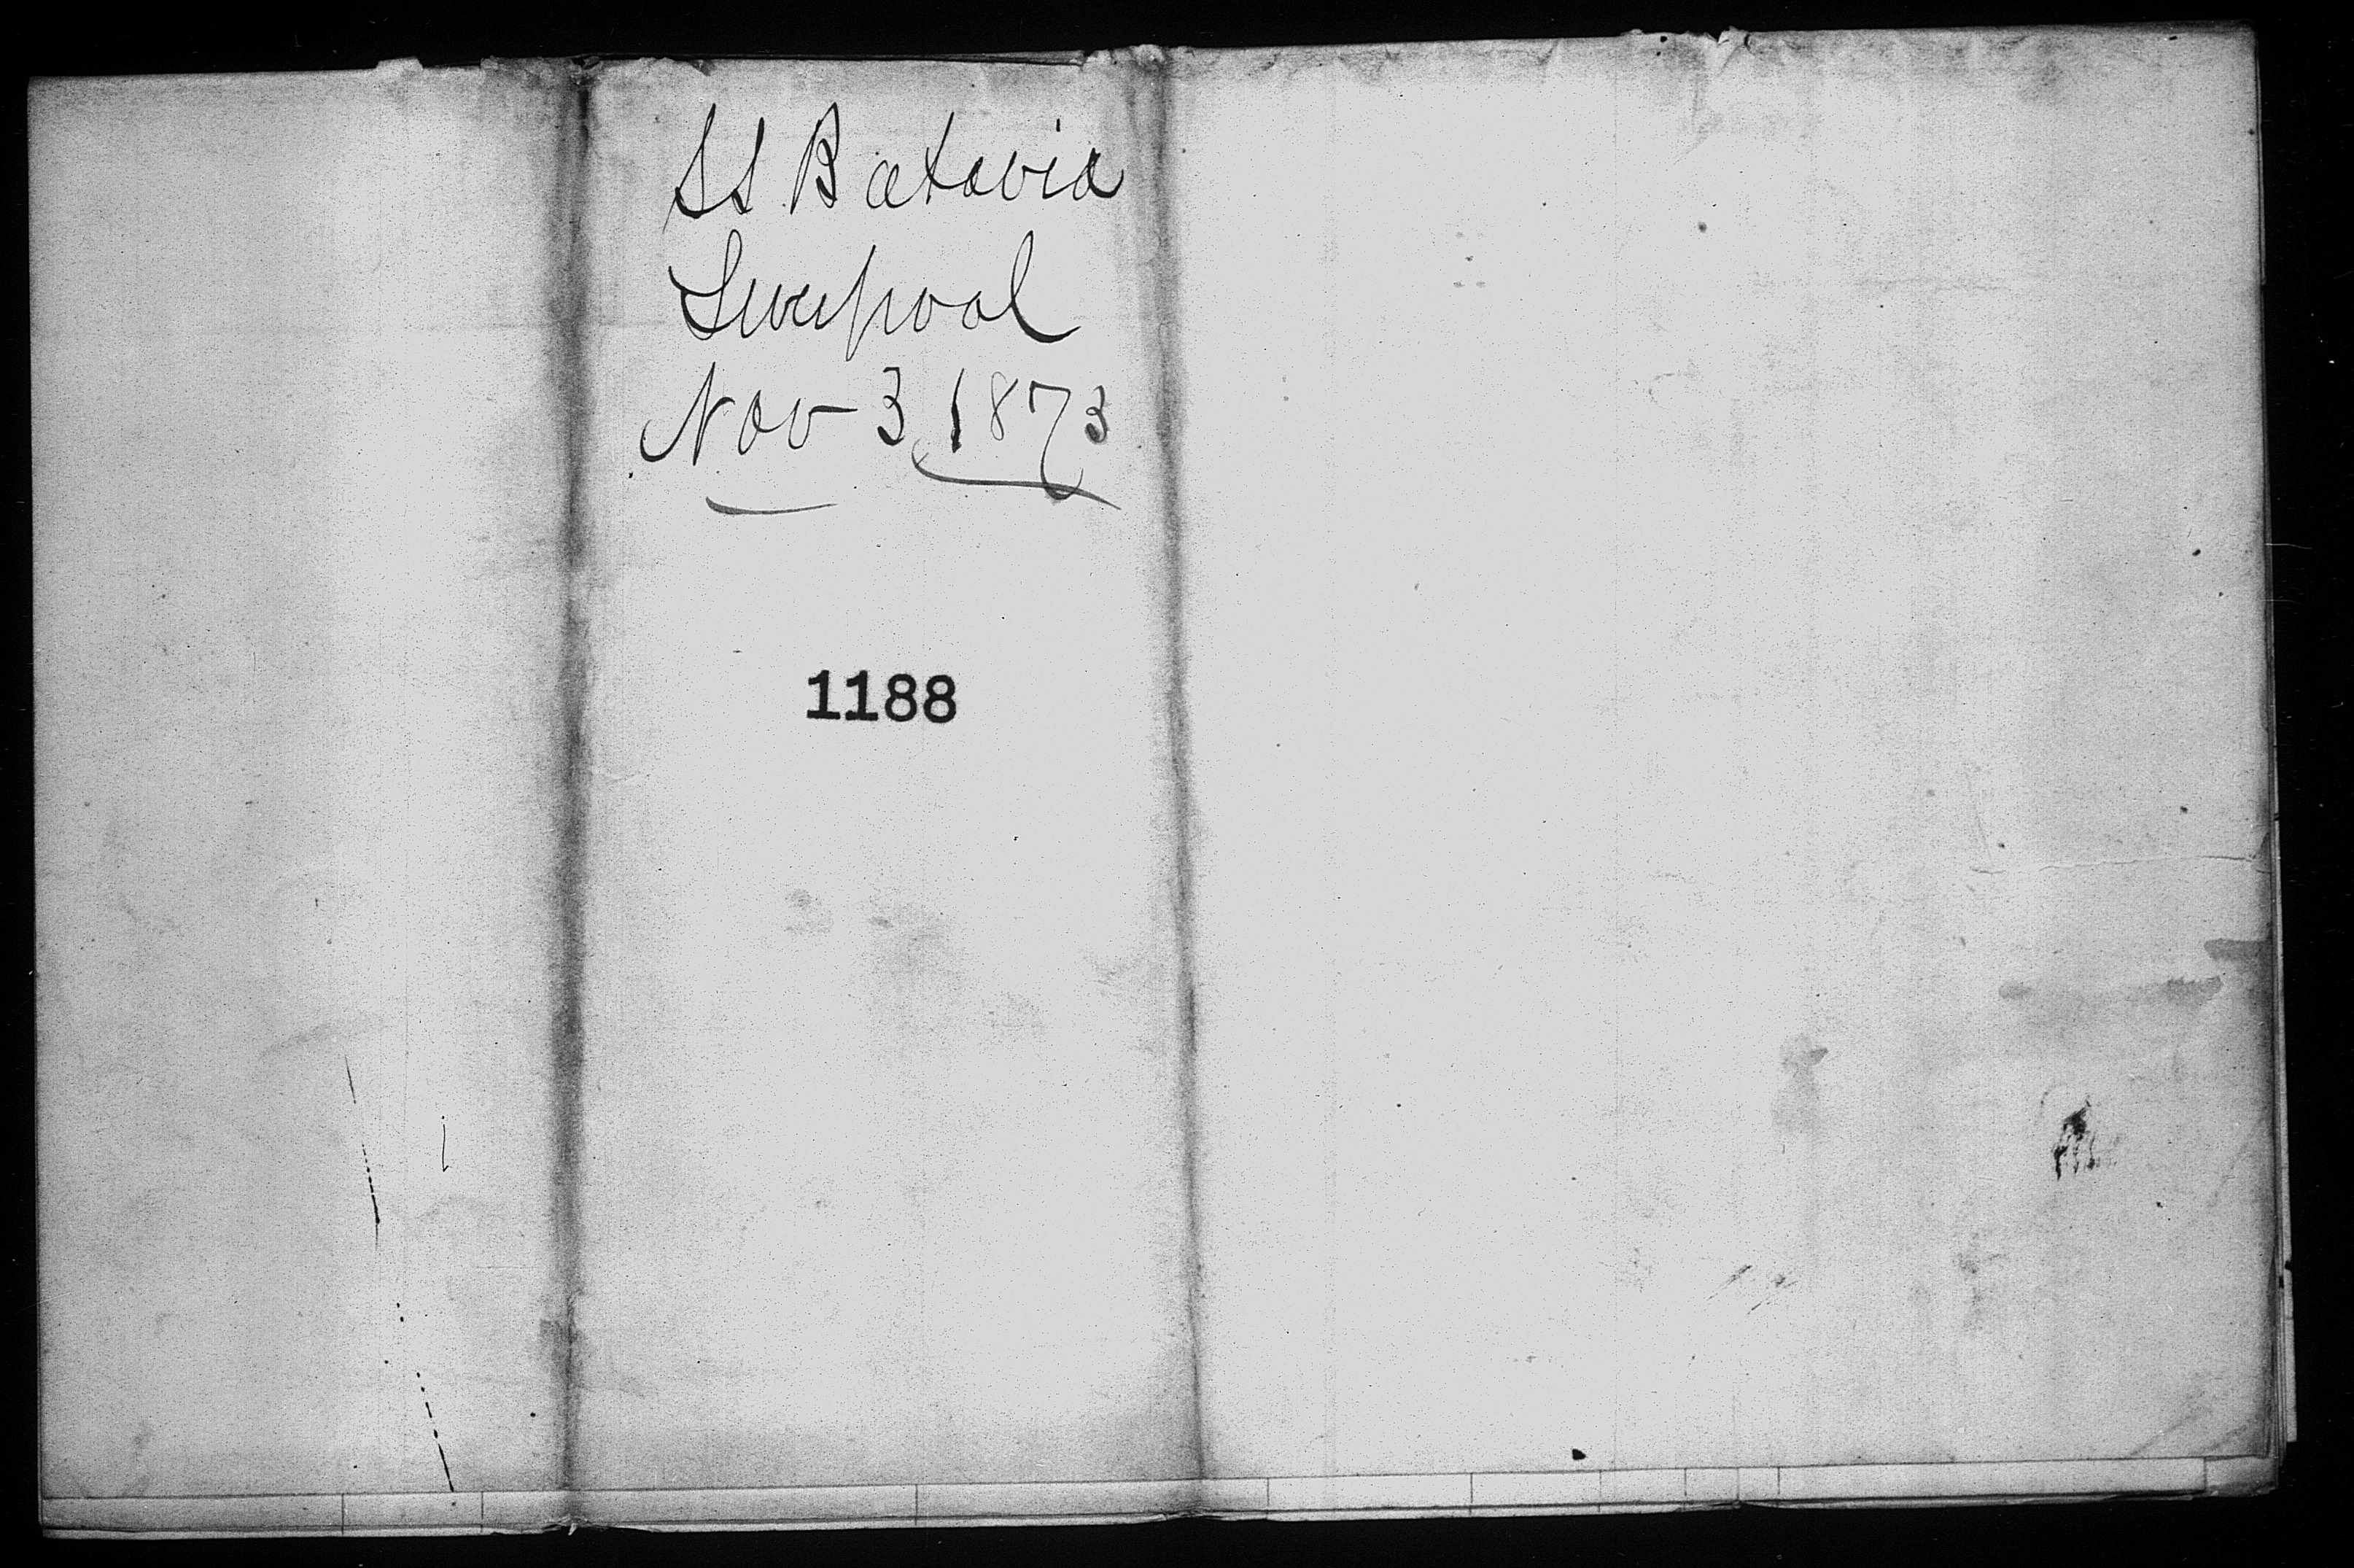 SS Batavia
Liverpool
Nov 3 1873
1188